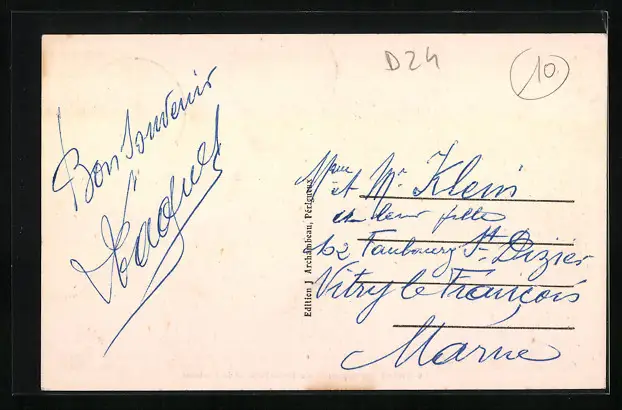 D24
10
Bon Souvenir
Edition J. Archambeau, Périgueux
Mme
et Mr. Klein
et leur fille
62 Faubourg St. Dizier
Vitry le François
Marne